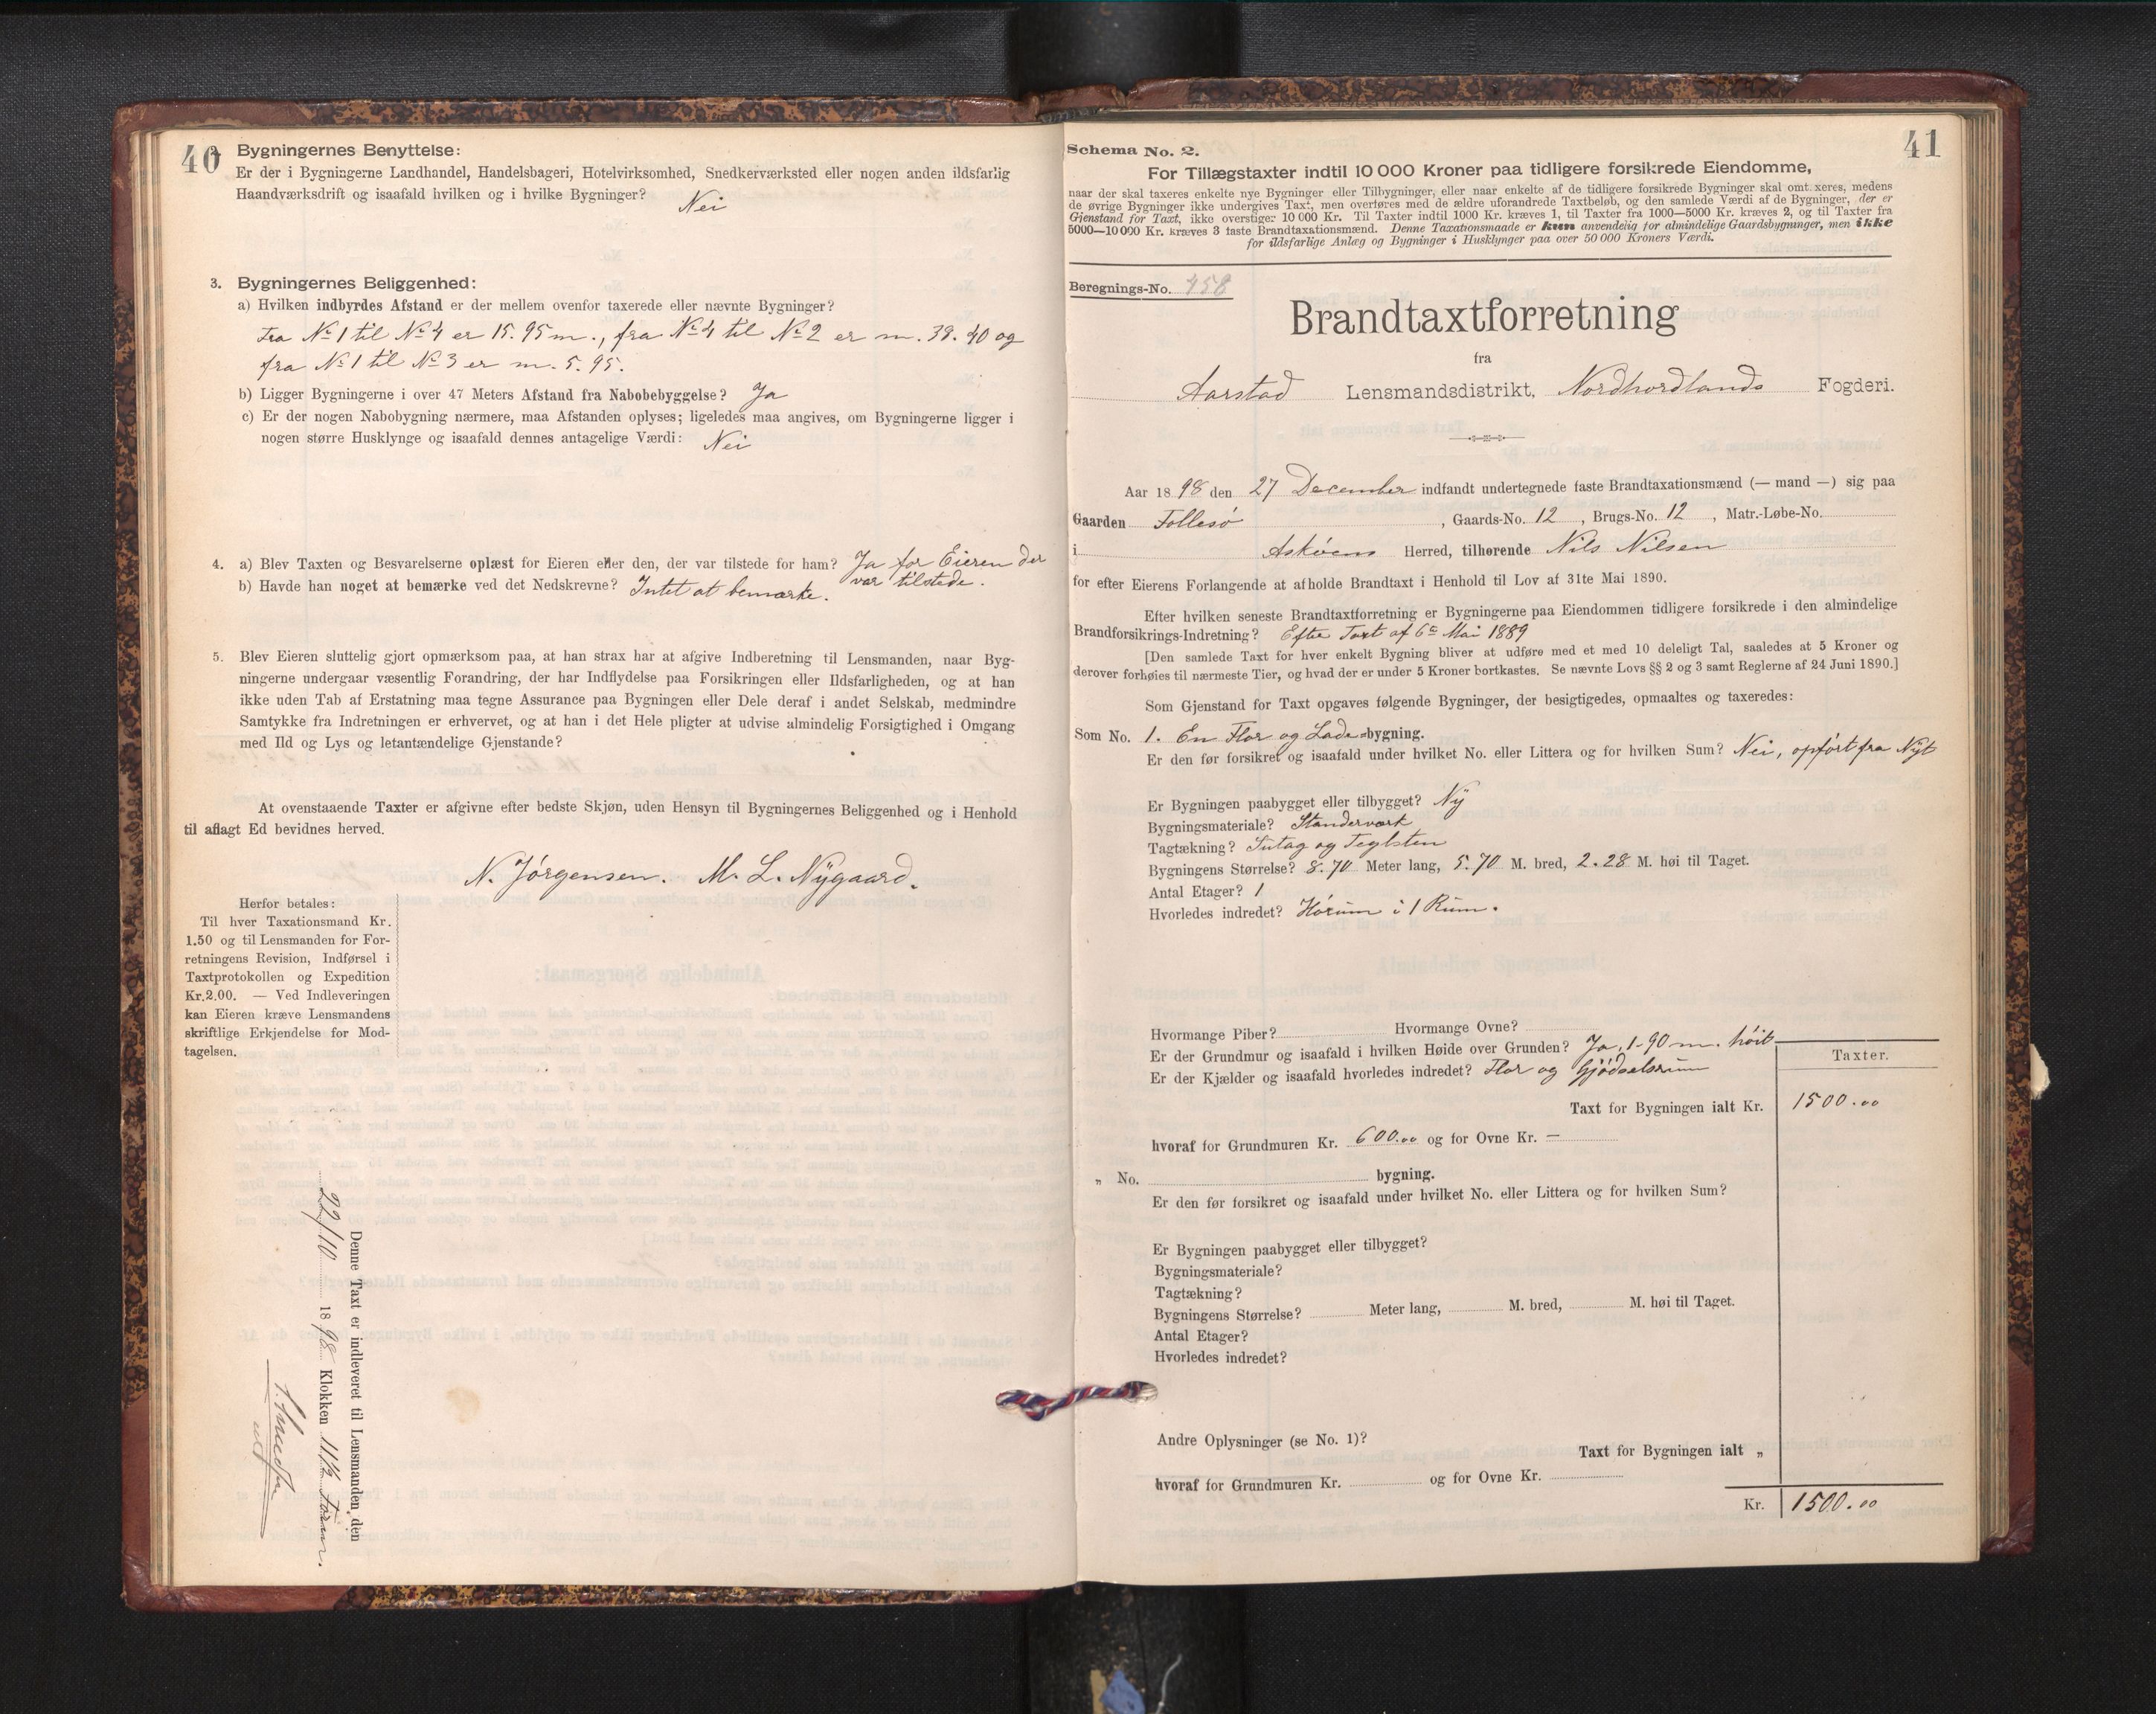 40
Bygningernes Benyttelse:
Er der i Bygningerne Landhandel, Handelsbageri, Hotelvirksomhed, Snedkerværksted eller nogen anden ildsfarlig
Haandværksdrift og isaafald hvilken og i hvilke Bygninger? Nei
3. Bygningernes Beliggenhed:
a) Hvilken indbyrdes Afstand er der mellem ovenfor taxerede eller nævnte Bygninger?
Fra No 1 til No 4 er 15.95 m., fra No 4 til No 2 er m. 38.40 og
fra No 1 til No 3 er m. 5.95.
b) Ligger Bygningerne i over 47 Meters Afstand fra Nabobebyggelse? Ja
c) Er der nogen Nabobygning nærmere, maa Afstanden oplyses; ligeledes maa angives, om Bygningerne ligger i
nogen større Husklynge og isaafald dennes antagelige Værdi: Nei
4. a) Blev Taxten og Besvarelserne oplæst for Eieren eller den, der var tilstede for ham? Ja for Eieren der
var tilstede.
b) Havde han noget at bemærke ved det Nedskrevne? Intet at bemærke.
5. Blev Eieren sluttelig gjort opmærksom paa, at han strax har at afgive Indberetning til Lensmanden, naar Byg-
ningerne undergaar væsentlig Forandring, der har Indflydelse paa Forsikringen eller Ildsfarligheden, og at han
ikke uden Tab af Erstatning maa tegne Assurance paa Bygningen eller Dele deraf i andet Selskab, medmindre
Samtykke fra Indretningen er erhvervet, og at han i det Hele pligter at udvise almindelig Forsigtighed i Omgang
med Ild og Lys og letantændelige Gjenstande?
At ovenstaaende Taxter er afgivne efter bedste Skjøn, uden Hensyn til Bygningernes Beliggenhed og i Henhold
til aflagt Ed bevidnes herved.
N. Jørgensen. M. L. Nÿgaard.
Herfor betales:
Til hver Taxationsmand Kr.
1.50 og til Lensmanden for For-
retningens Revision, Indførsel i
Taxtprotokollen og Expedition
Kr.2.00. — Ved Indleveringen
kan Eieren kræve Lensmandens
skriftlige Erkjendelse for Mod-
tagelsen.
Denne Taxt er indleveret til Lensmanden den
22/10 1898 Klokken 11½ Form.
41
Schema No. 2.
For Tillægstaxter indtil 10 000 Kroner paa tidligere forsikrede Eiendomme,
naar der skal taxeres enkelte nye Bygninger eller Tilbygninger, eller naar enkelte af de tidligere forsikrede Bygninger skal omt xeres, medens
de øvrige Bygninger ikke undergives Taxt, men overføres med de ældre uforandrede Taxtbeløb, og den samlede Værdi af de Bygninger, der er
Gjenstand for Taxt, ikke overstiger 10 000 Kr. Til Taxter indtil 1000 Kr. kræves 1, til Taxter fra 1000—5000 Kr. kræves 2, og til Taxter fra
5000—10 000 Kr. kræves 3 faste Brandtaxationsmænd. Denne Taxationsmaade er kun anvendelig for almindelige Gaardsbygninger, men ikke
for ildsfarlige Anlæg og Bygninger i Husklynger paa over 50 000 Kroners Værdi.
Beregnings-No. 458
Brandtaxtforretning
fra
Aarstad Lensmandsdistrikt, Nordhordlands Fogderi.
Aar 1898 den 27 December indfandt undertegnede faste Brandtaxationsmænd (— mand —) sig paa
Gaarden Follesø, Gaards-No. 12, Brugs-No. 12, Matr.-Løbe-No.
i Askøens Herred, tilhørende Nils Nilsen
for efter Eierens Forlangende at afholde Brandtaxt i Henhold til Lov af 31te Mai 1890.
Efter hvilken seneste Brandtaxtforretning er Bygningerne paa Eiendommen tidligere forsikrede i den almindelige
Brandforsikrings-Indretning? Efter Taxt af 6te Mai 1889
[Den samlede Taxt for hver enkelt Bygning bliver at udføre med et med 10 deleligt Tal, saaledes at 5 Kroner og
derover forhøies til nærmeste Tier, og hvad der er under 5 Kroner bortkastes. Se nævnte Lovs §§ 2 og 3 samt Reglerne af 24 Juni 1890.]
Som Gjenstand for Taxt opgaves følgende Bygninger, der besigtigedes, opmaaltes og taxeredes:
Som No. 1. En Flor og Lade-bygning.
Er den før forsikret og isaafald under hvilket No. eller Littera og for hvilken Sum? Nei, opført fra Nÿt
Er Bygningen paabygget eller tilbygget? Nÿ
Bygningsmateriale? Standerværk
Tagtækning? Sutag og Teglsten
Bygningens Størrelse? 8.70 Meter lang, 5.70 M. bred, 2.28 M. høi til Taget.
Antal Etager? 1
Hvorledes indredet? Hørum i 1 Rum.
Hvormange Piber? Hvormange Ovne?
Er der Grundmur og isaafald i hvilken Høide over Grunden? Ja, 1.90 m. høit
Er der Kjælder og isaafald hvorledes indredet? Flor og Gjødselsrum
Taxter.
Taxt for Bygningen ialt Kr. 1500.00
hvoraf for Grundmuren Kr. 600.00 og for Ovne Kr. —
„ No. bygning.
Er den før forsikret og isaafald under hvilket No. eller Littera og for hvilken Sum?
Er Bygningen paabygget eller tilbygget?
Bygningsmateriale?
Tagtækning?
Bygningens Størrelse? Meter lang, M. bred, M. høi til Taget.
Antal Etager?
Hvorledes indredet?
Andre Oplysninger (se No. 1)?
Taxt for Bygningen ialt „
hvoraf for Grundmuren Kr. og for Ovne Kr.
Kr. 1500.00